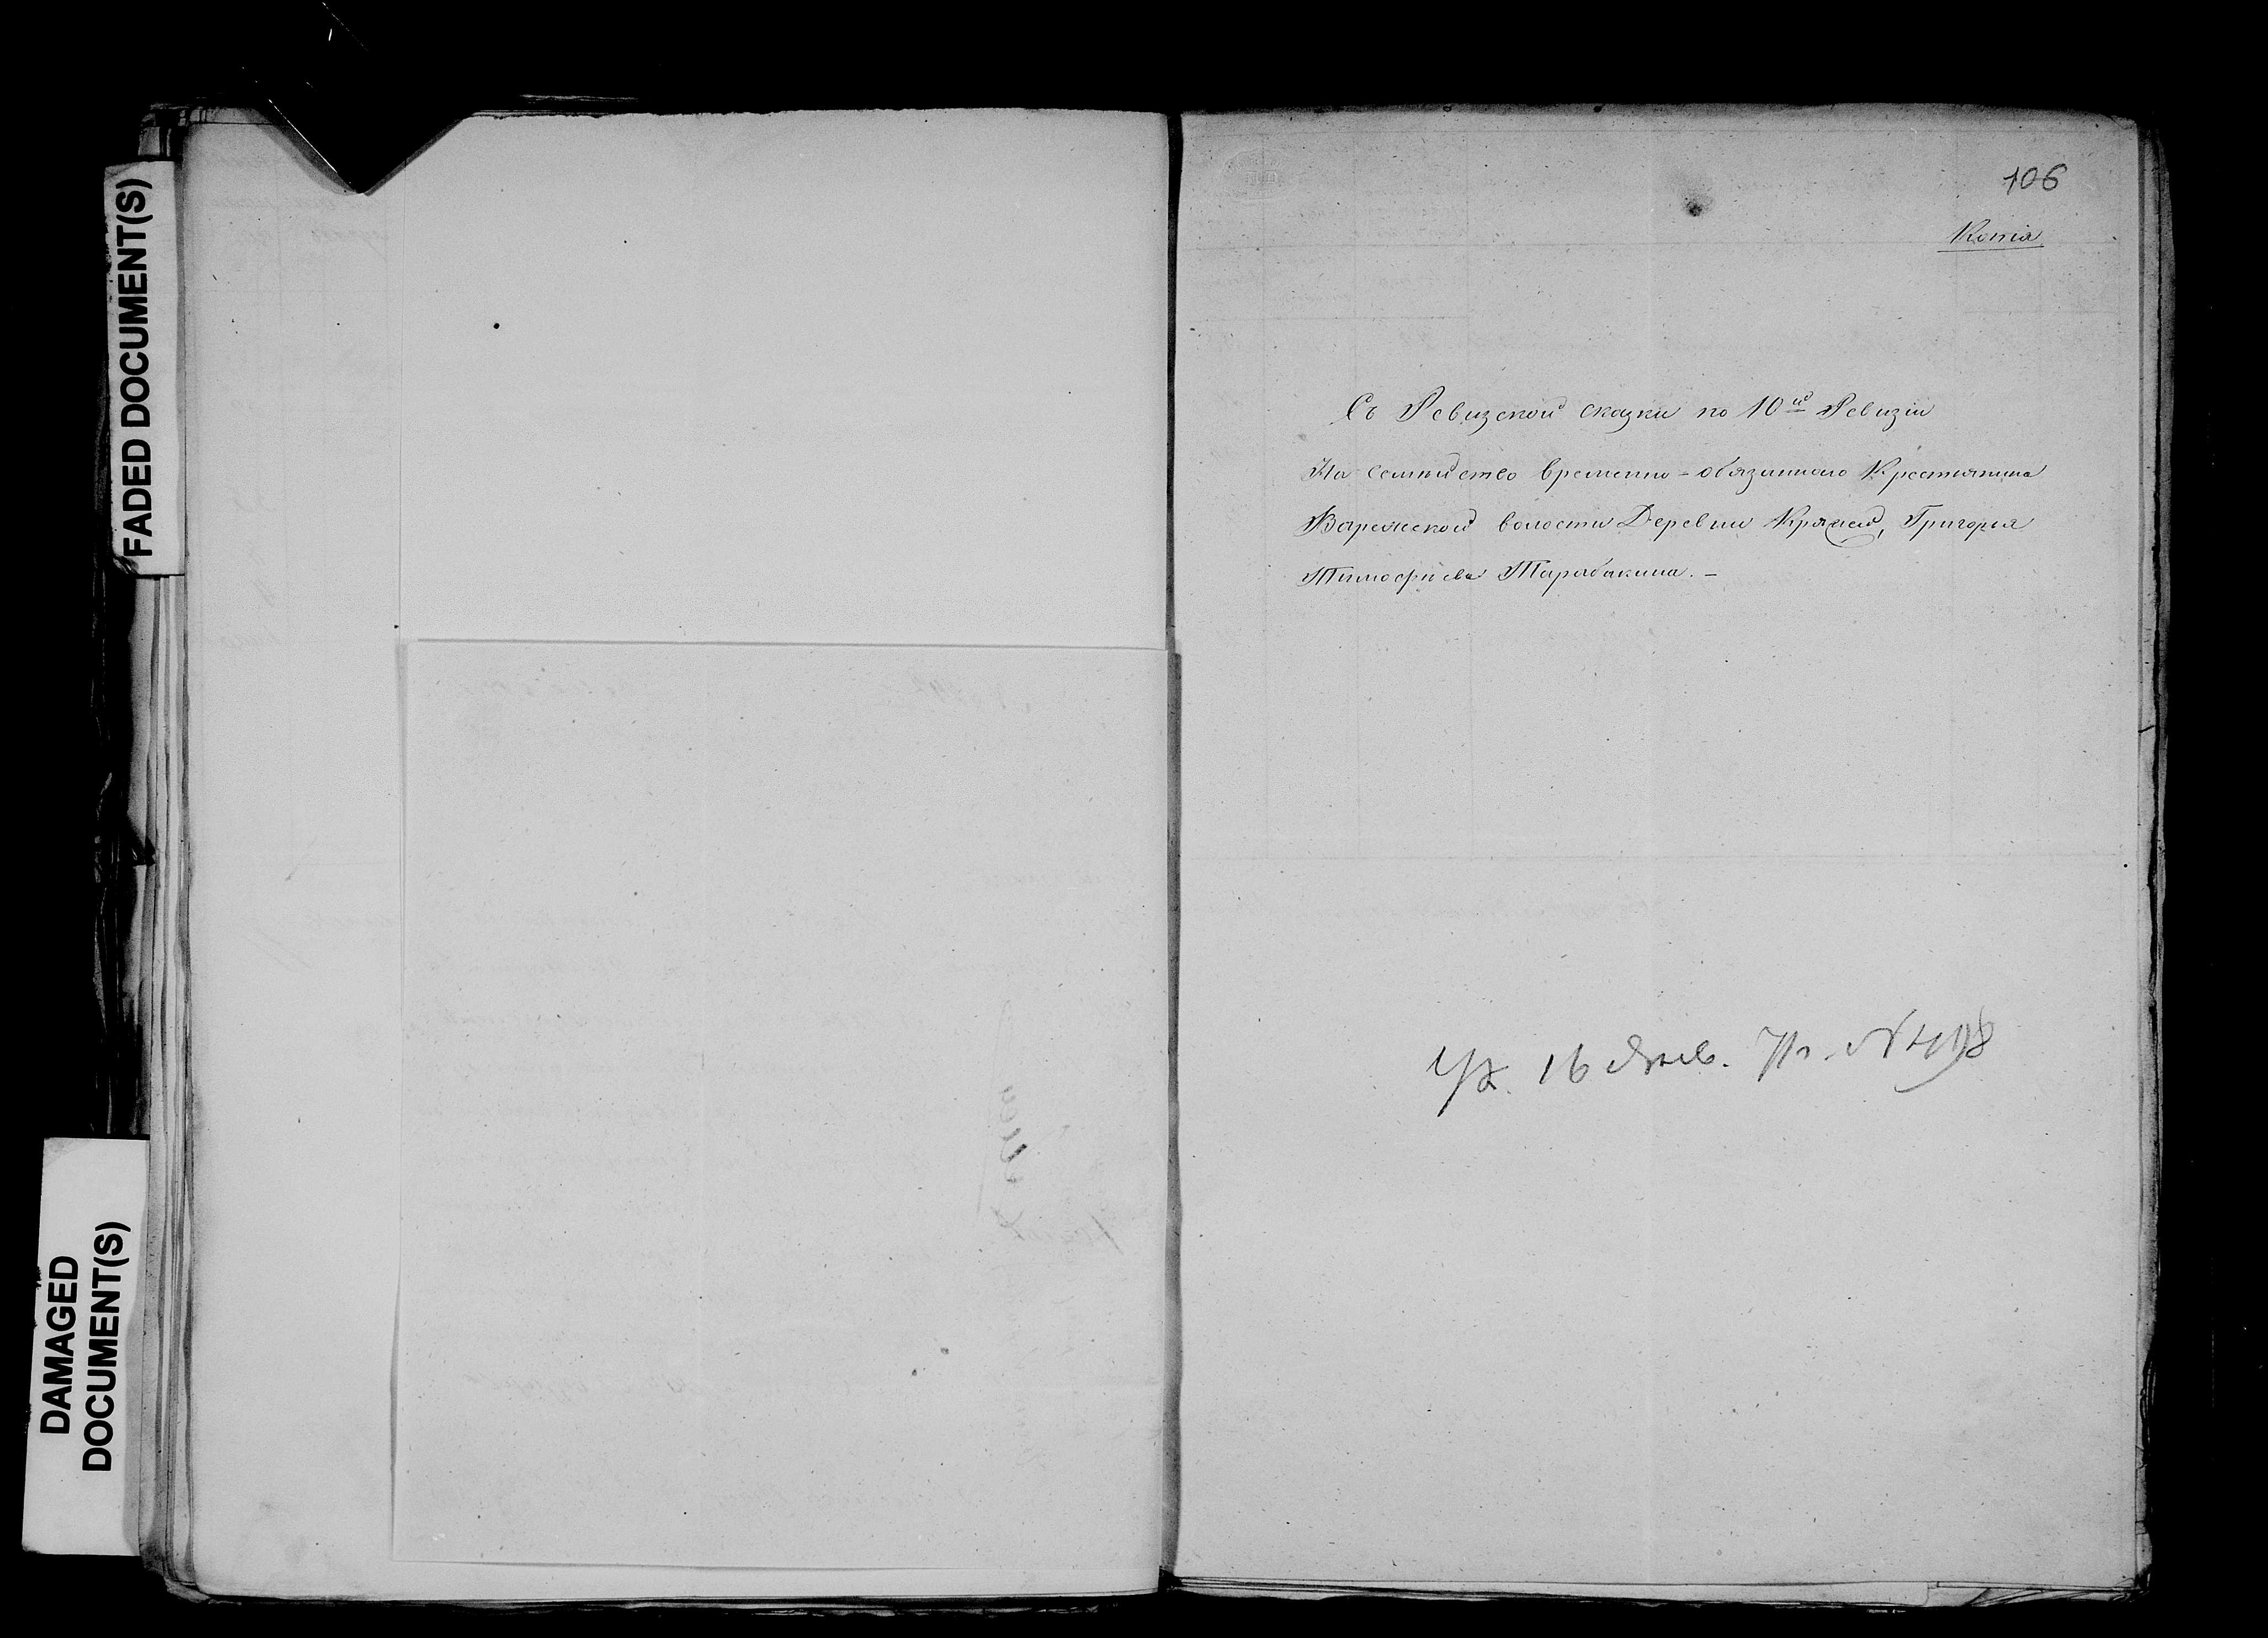 FADED DOCUMENT(S)
DAMAGED
DOCUMENT(S)
106
Копія
Съ Ревизской сказки по 10й Ревизіи
На семѣйство временно-обязаннаго Крестьянина
Варежской волости Деревни Кряжей, Григорья
Тимофѣева Тарабакина. –
Ук. 16 Янв. 71 г. №